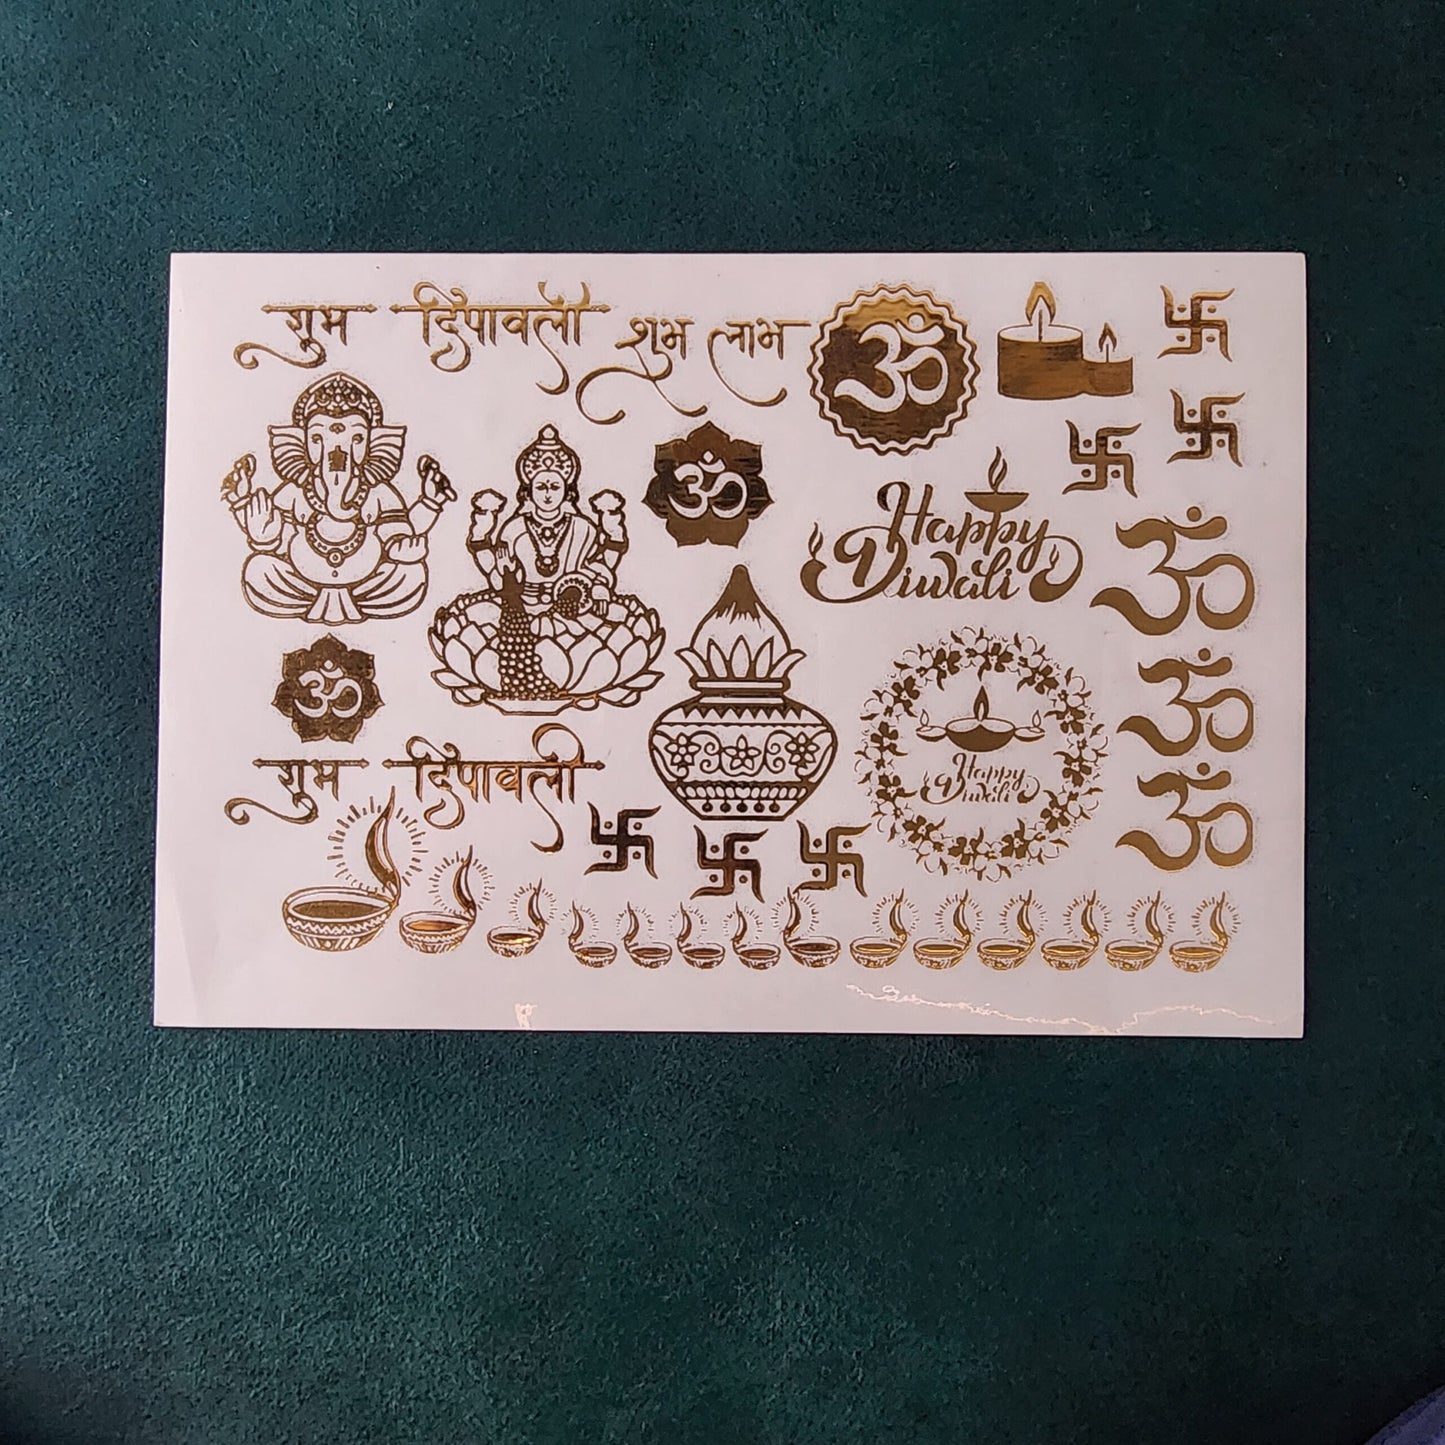 शुभ दिपावली
शुभ लाभ
ॐ
ॐ
Happy
Diwali
ॐ
ॐ
ॐ
Happy
Diwali
शुभ दिपावली
ॐ